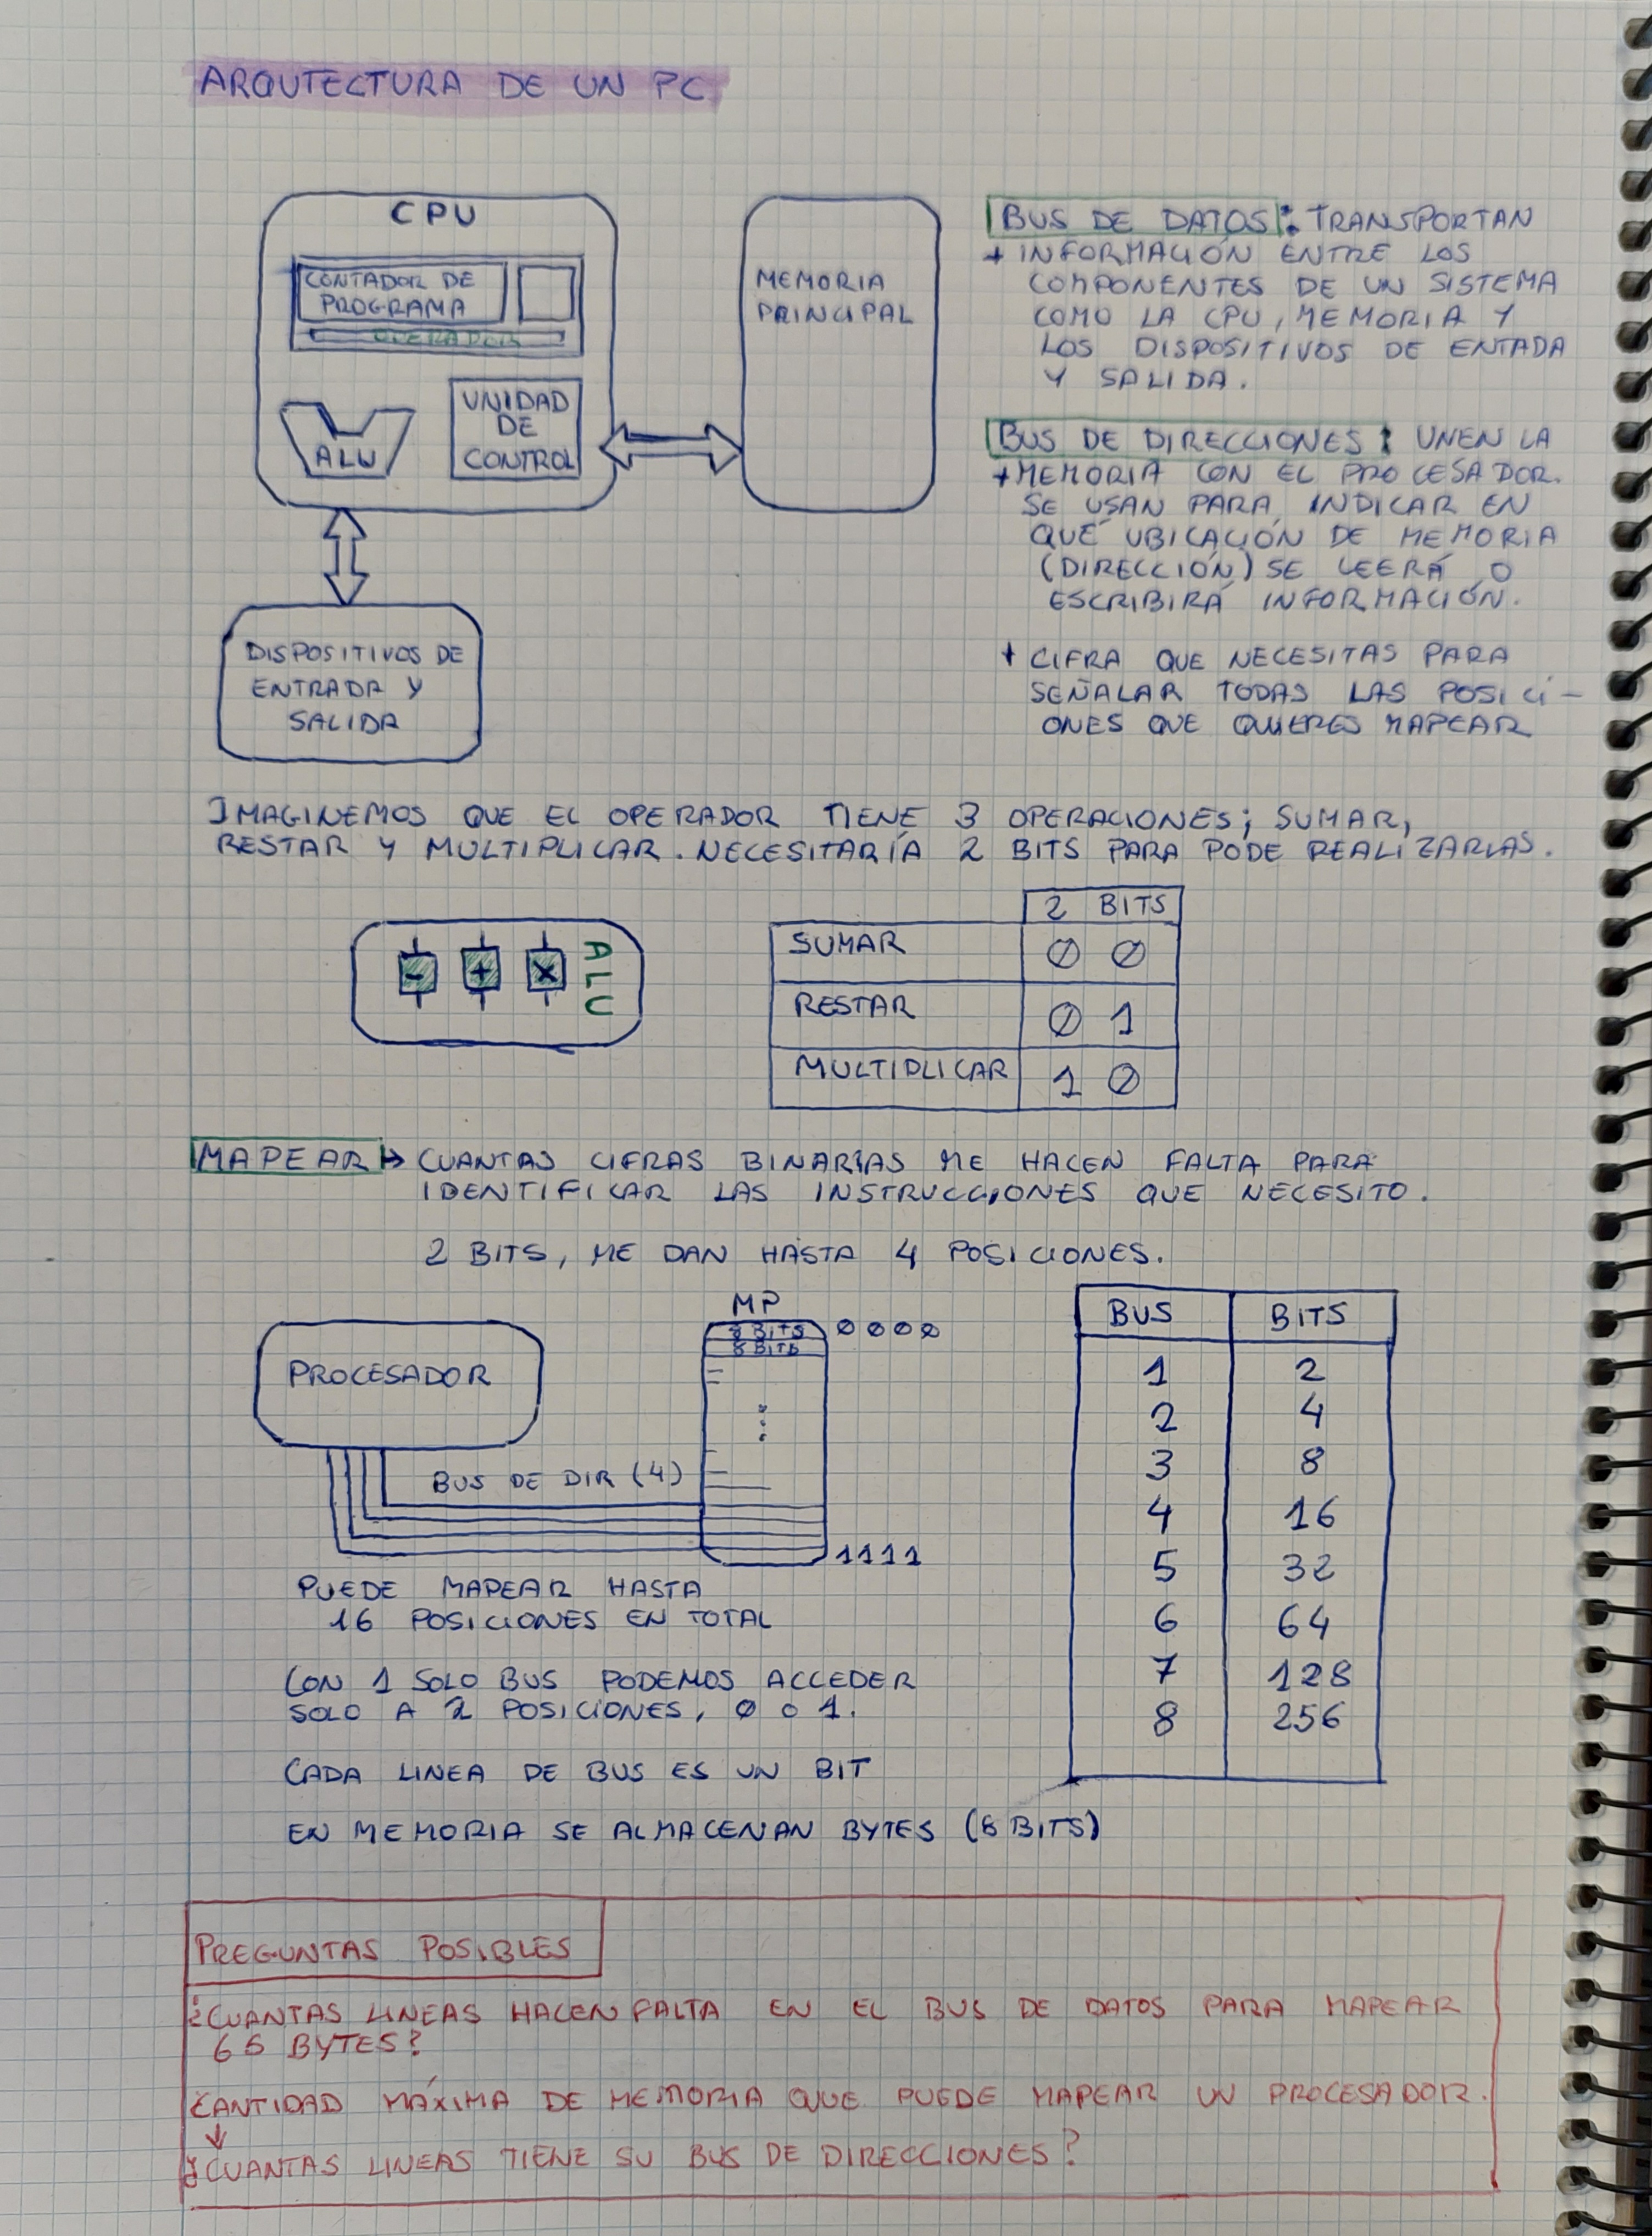 ARQUTECTURA DE UN PC
CPU
CONTADOR DE
PROGRAMA
OPERADOR
ALU
UNIDAD
DE
CONTROL
MEMORIA
PRINCIPAL
DISPOSITIVOS DE
ENTRADA Y
SALIDA
BUS DE DATOS: TRANSPORTAN
+ INFORMACIÓN ENTRE LOS
COMPONENTES DE UN SISTEMA
COMO LA CPU, MEMORIA Y
LOS DISPOSITIVOS DE ENTADA
Y SALIDA.
BUS DE DIRECCIONES: UNEN LA
+ MEMORIA CON EL PROCESADOR.
SE USAN PARA INDICAR EN
QUÉ UBICACIÓN DE MEMORIA
(DIRECCIÓN) SE LEERÁ O
ESCRIBIRÁ INFORMACIÓN.
+ CIFRA QUE NECESITAS PARA
SEÑALAR TODAS LAS POSICI-
ONES QUE QUIERES MAPEAR
IMAGINEMOS QUE EL OPERADOR TIENE 3 OPERACIONES; SUMAR,
RESTAR Y MULTIPLICAR. NECESITARÍA 2 BITS PARA PODE REALIZARLAS.
- + x ALU
2 BITS
SUMAR 0 0
RESTAR 0 1
MULTIPLICAR 1 0
MAPEAR → CUANTAS CIFRAS BINARIAS ME HACEN FALTA PARA
IDENTIFICAR LAS INSTRUCCIONES QUE NECESITO.
2 BITS, ME DAN HASTA 4 POSICIONES.
PROCESADOR
MP
8 BITS 0000
8 BITS
BUS DE DIR (4)
1111
PUEDE MAPEAR HASTA
16 POSICIONES EN TOTAL
CON 1 SOLO BUS PODEMOS ACCEDER
SOLO A 2 POSICIONES, 0 O 1.
CADA LINEA DE BUS ES UN BIT
EN MEMORIA SE ALMACENAN BYTES (8 BITS)
BUS BITS
1 2
2 4
3 8
4 16
5 32
6 64
7 128
8 256
PREGUNTAS POSIBLES
¿CUANTAS LINEAS HACEN FALTA EN EL BUS DE DATOS PARA MAPEAR
65 BYTES?
CANTIDAD MÁXIMA DE MEMORIA QUE PUEDE MAPEAR UN PROCESADOR.
↓
¿CUANTAS LINEAS TIENE SU BUS DE DIRECCIONES?